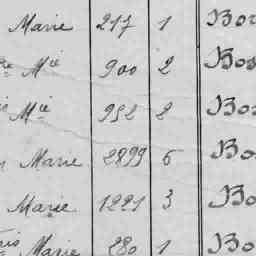 Marie 217 1 Bor
re Mie 900 2 Bos
Mie 952 2 Bos
Marie 2899 6 Bo
Marie 1221 3 Bo
Marie 280 1 Bo